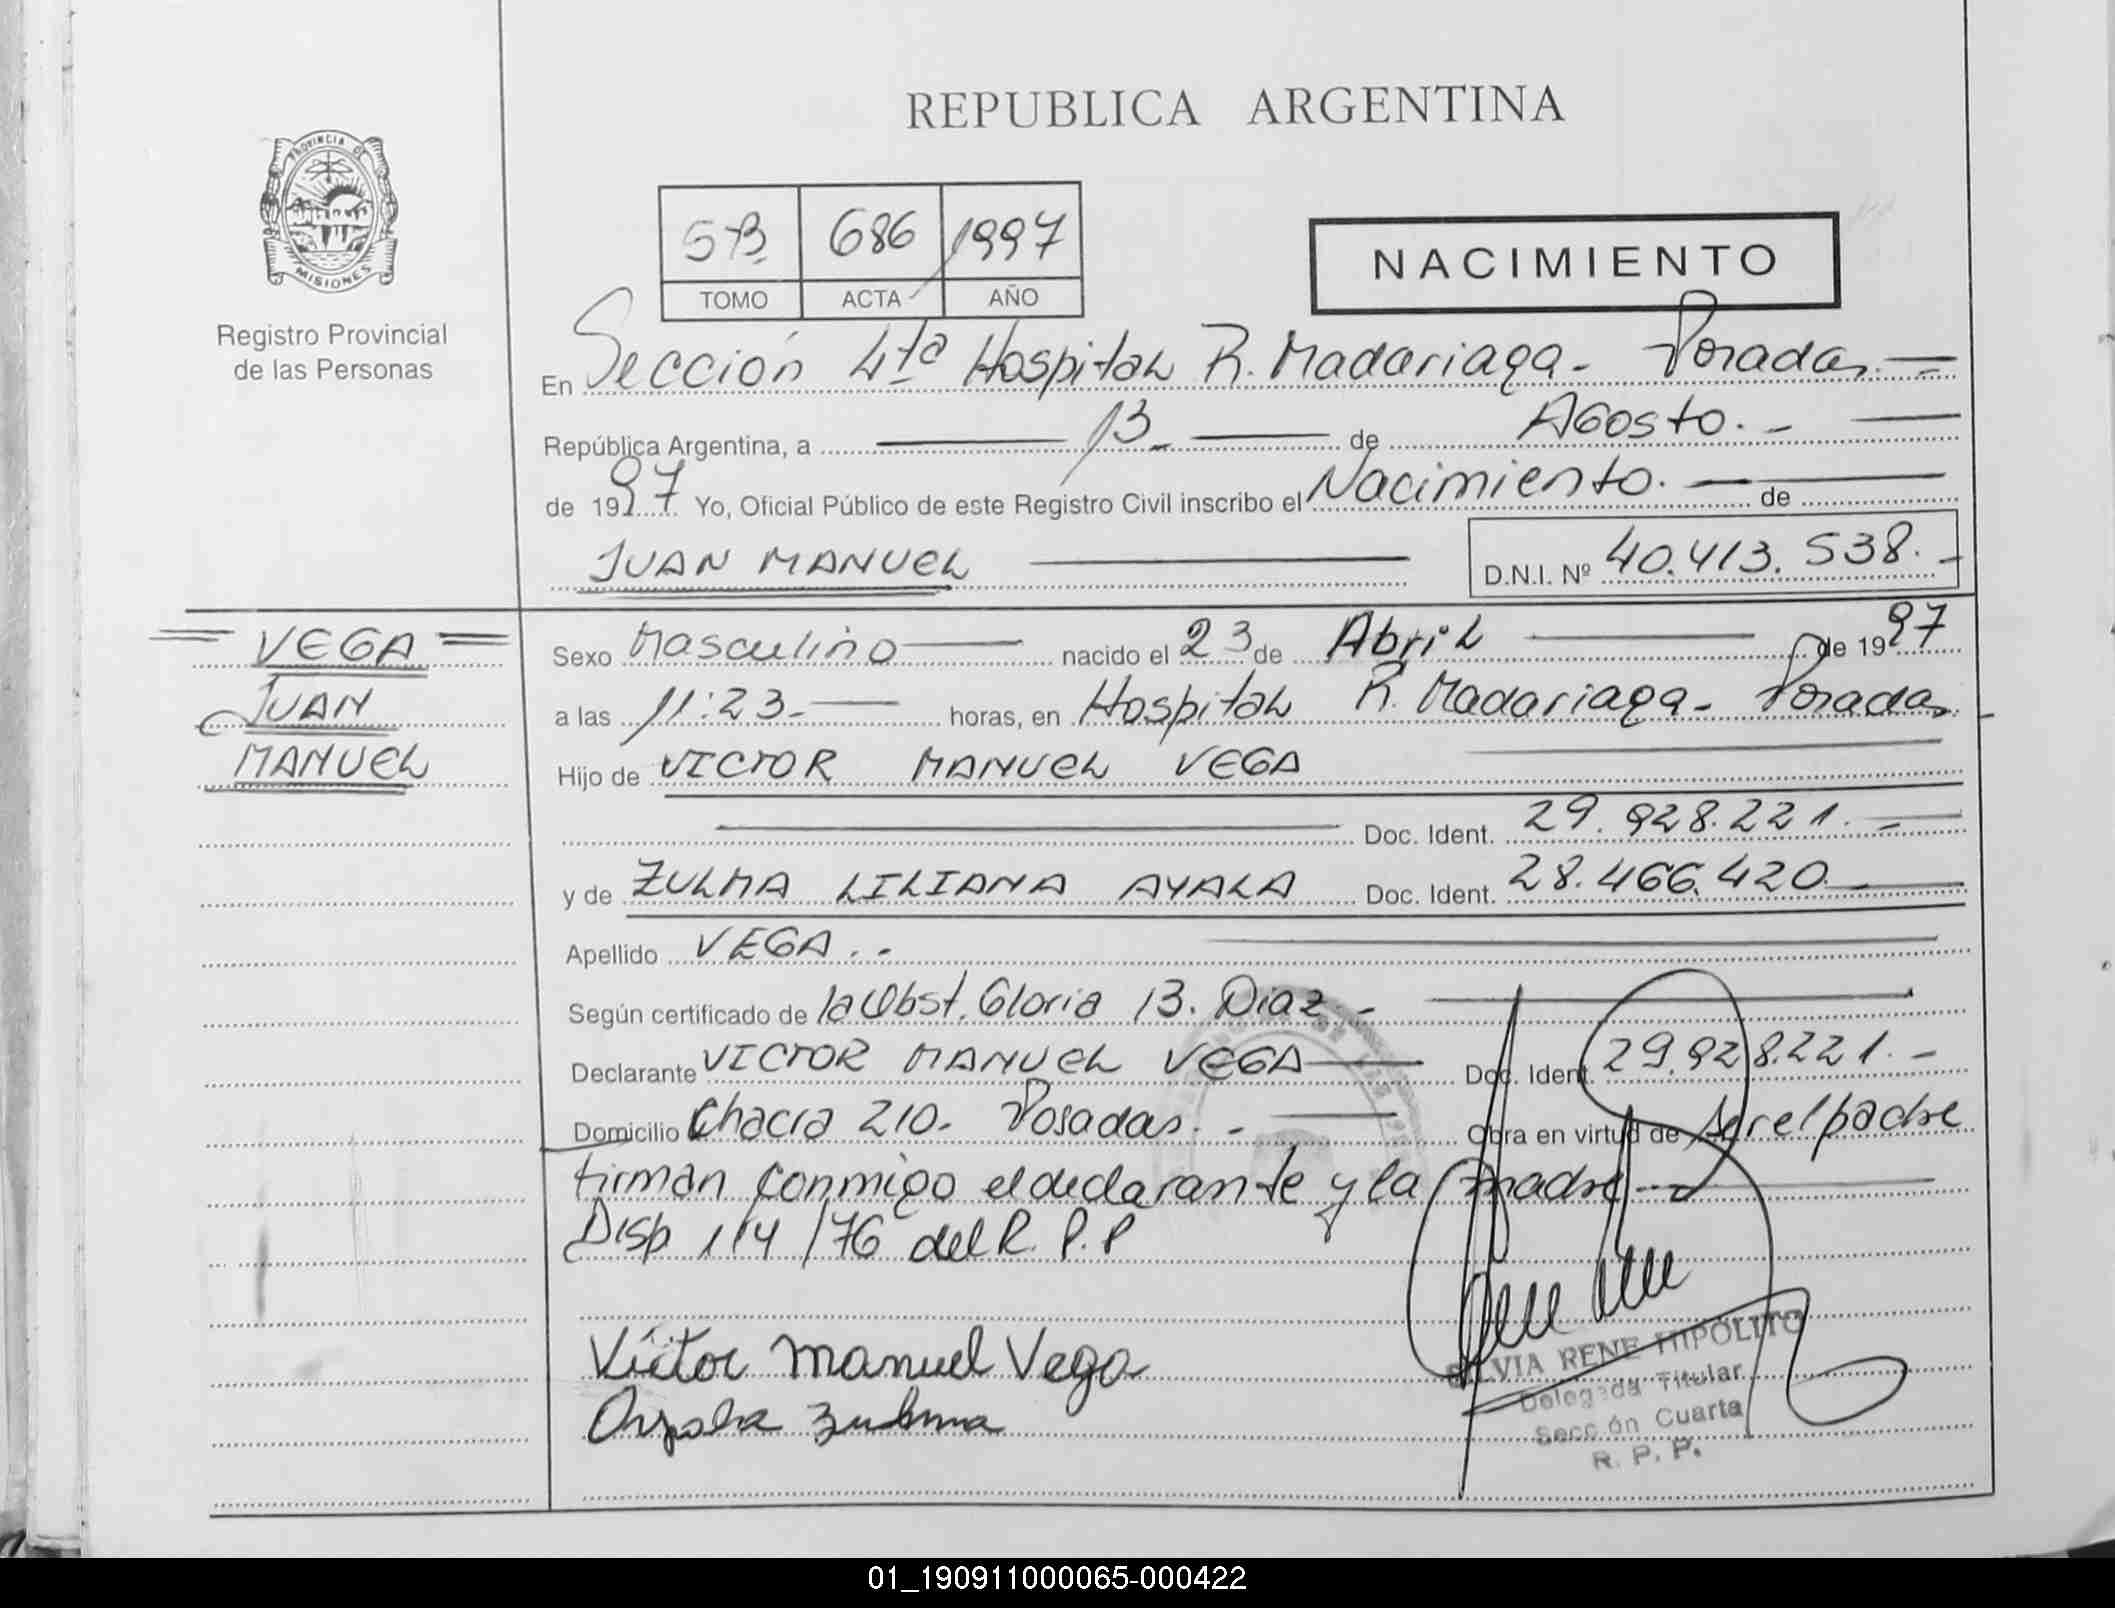 REPUBLICA ARGENTINA
PROVINCIA DE
MISIONES
Registro Provincial
de las Personas
5B 686 1997
TOMO ACTA AÑO
NACIMIENTO
En Sección 4ta Hospital R. Madariaga - Posadas. =
República Argentina, a 13 - de Agosto. -
de 1997 Yo, Oficial Público de este Registro Civil inscribo el Nacimiento. - de
JUAN MANUEL D.N.I. Nº 40.413.538. -
= VEGA =
JUAN
MANUEL
Sexo Masculino nacido el 23 de Abril de 1997
a las 11:23 - horas, en Hospital R. Madariaga - Posadas.
Hijo de VICTOR MANUEL VEGA
Doc. Ident. 29.928.221. -
y de ZULMA LILIANA AYALA Doc. Ident. 28.466.420 -
Apellido VEGA. . -
Según certificado de la Obst. Gloria B. Diaz -
Declarante VICTOR MANUEL VEGA Doc. Ident. 29.928.221. -
Domicilio Chacra 210. Posadas. - Obra en virtud de ser el padre
firman conmigo el declarante y la madre -
Disp 114/76 del R. P. P
Victor Manuel Vega
Ayala Zulma
SILVIA RENE HIPOLITO
Delegada Titular
Sección Cuarta
R. P. P.
01_190911000065-000422